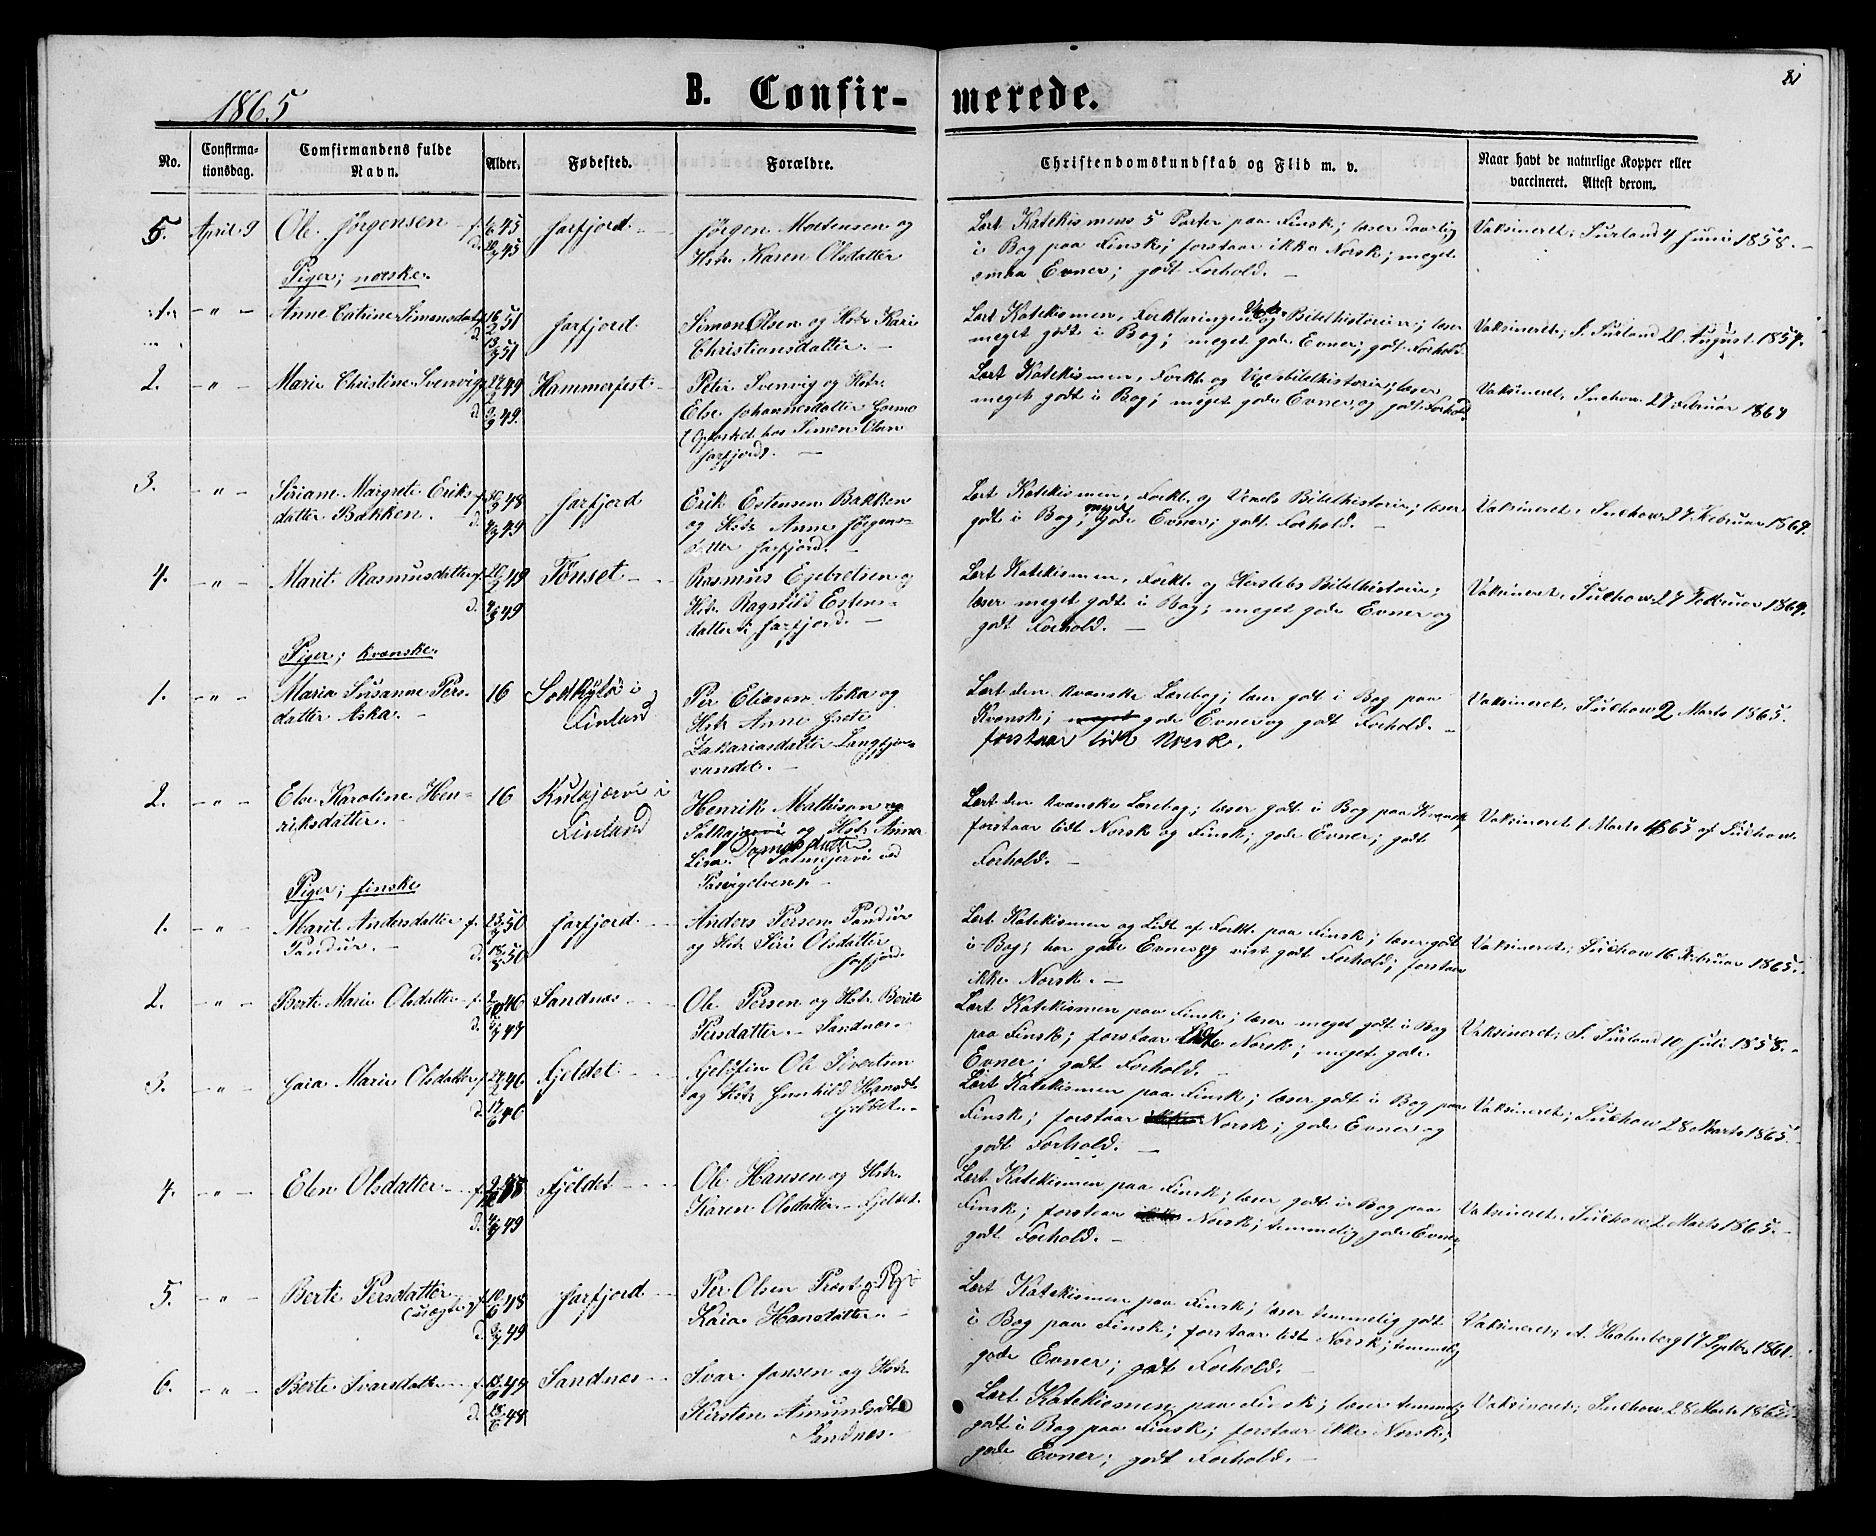 1865
B. Confir-merede.
81
No.
Confirma-
tionsdag.
Comfirmandens fulde
Navn.
Alder.
Fødested.
Forældre.
Christendomskundskab og Flid m. v.
Naar havt de naturlige Kopper eller
vaccineret. Attest derom.
5. April 9 Ole Jørgensen f. 45 Jarfjord Jørgen Mortensen og
d. 45 Hstr. Karen Olsdatter
Lært Katekismens 5 Parter paa Finsk; læser daarlig
i Bog paa Finsk; forstaar ikke Norsk; meget
smaa Evner; godt Forhold.
Vaksineret; Surland 4 Juni 1858.
Piger; norske.
1. " Anne Catrine Simonsdat. f. 51 Jarfjord Simon Olsen og Hstr. Kari
d. 51 Christionsdatter.
Lært Katekismen, Forklaringen og Bibelhistorien; læser
meget godt i Bog; meget gode Evner; godt Forhold.
Vaksineret; S. Surland 20 August 1857.
2. " Marie Christine Svenvig f. 49 Hammerfest Peter Svenvig og Hstr.
d. 49. Else Johannesdatter Gormo
(Opfostret hos Simon Olsen
Jarfjord).
Lært Katekismen, Forkl. og Vogts bibelhistorie; læser
meget godt i Bog; meget gode Evner og godt Forhold.
Vaksineret, Suchow 27 Februar 1864
3. " Siriane Margrete Eriks- f. 48 Jarfjord Erik Estensen Bakken
datter Bakken. d. 49 og Hstr. Anne Jørgens-
datter Jarfjord.
Lært Katekismen, Forkl. og Vogts Bibelhistorie; læser
godt i Bog; meget gode Evner; godt Forhold.
Vaksineret, Suchow 27 Februar 1864.
4. " Marit Rasmusdatter f. 49 Tønset Rasmus Egebretsen og
d. 49 Hstr. Ragnild Estens-
datter i Jarfjord.
Lært Katekismen, Forkl. og Herslebs Bibelhistorie;
læser meget godt i Bog; meget gode Evner og
godt Forhold.
Vaksineret, Suchow 27 Februar 1864.
Piger; kvænske.
1. " Maria Susanne Pers- 16 Sodkylä i Per Eliason Aska og
datter Aska. Finland Hstr. Anne Grete
Zakariasdatter Langfjor-
vandet.
Lært den kvænske Lærebog; læser godt i Bog paa
Kvænsk; meget gode Evner og godt Forhold.
forstaar lidt Norsk.
Vaksineret, Suchow 2 Marts 1865.
2. " Else Karoline Hen- 16 Kulajærvi i Henrik Mathison og
riksdatter. Finland Hstr. Anna
Lisa
Pasvigelven).
Lært den kvænske Lærebog; læser godt i Bog paa Kvænsk,
forstaar lidt Norsk og Finsk; gode Evner; godt
Forhold.
Vaksineret 1 Marts 1865 af Suchow.
Piger; finske
1. " Marit Andersdatter f. 50 Jarfjord Anders Persen Pandur
Pandur. d. 50 og Hstr. Siri Olsdatter
Jarfjord.
Lært Katekismen og Lidt af Forkl. paa Finsk; læser godt
i Bog; har gode Evner og vist godt Forhold; forstaar
ikke Norsk.
Vaksineret; Suchow 16 Februar 1865.
2. " Berte Marie Olsdatter f. 46 Sandnæs Ole Persen og Hstr. Berit
d. 47 Persdatter Sandnæs.
Lært Katekismen paa Finsk; læser meget godt i Bog
paa Finsk; forstaar lidt Norsk; meget gode
Evner; godt Forhold.
Vaksineret; S. Surland 10 Juli 1858.
3. " Gaia Marie Olsdatter f. 46 Fjeldet Fjelfin Ole Sivertsen
d. 46 og Hstr. Gunhild Hansdt.
Fjeldet.
Lært Katekismen paa Finsk; læser godt i Bog paa
Finsk; forstaar Norsk; gode Evner og
godt Forhold.
Vaksineret; Suchow 28 Marts 1865.
4. " Elen Olsdatter f. 48 Fjeldet Ole Hansen og Hstr.
d. 49 Karen Olsdatter Fjeldet
Lært Katekismen paa Finsk; læser godt i Bog paa
Finsk; forstaar Norsk; temmelig gode Evner,
godt Forhold.
Vaksineret, Suchow 2 Marts 1865.
5. " Berte Persdatter f. 48 Jarfjord Per Olsen Prost og Pige
(uægte) d. 49 Kaia Hansdatter.
Lært Katekismen paa Finsk; læser temmelig godt
i Bog paa Finsk; forstaar lidt Norsk; temmelig
gode Evner; godt Forhold.
Vaksineret; A. Holmberg 17 Septbr 1861.
6. " Berte Ivarsdatter f. 47 Sandnæs Ivar Jonsen og Hstr.
d. 48 Kirsten Amundsdt.
Sandnæs.
Lært Katekismen paa Finsk; læser temmelig
godt i Bog paa Finsk; forstaar ikke Norsk;
gode Evner; godt Forhold.
Vaksineret; Suchow 28 Marts 1865.